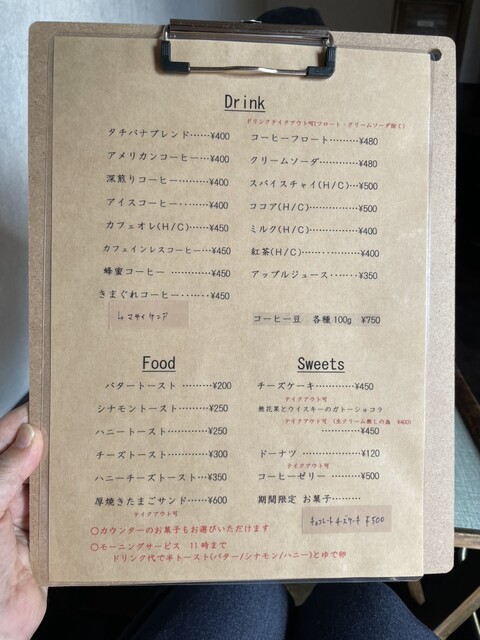 Drink
ドリンクテイクアウト可(フロート・クリームソーダ除く)
タチバナブレンド……¥400
アメリカンコーヒー…¥400
深煎りコーヒー………¥400
アイスコーヒー………¥400
カフェオレ(H/C)……¥450
カフェインレスコーヒー…¥450
蜂蜜コーヒー …………¥450
きまぐれコーヒー……¥450
↳ マサイ ケニア
コーヒーフロート………¥480
クリームソーダ…………¥480
スパイスチャイ(H/C)…¥500
ココア(H/C)……………¥500
ミルク(H/C)……………¥400
紅茶(H/C)………………¥400
アップルジュース………¥350
コーヒー豆 各種100g ¥750
Food
バタートースト ………¥200
シナモントースト………¥250
ハニートースト…………¥250
チーズトースト…………¥300
ハニーチーズトースト…¥350
厚焼きたまごサンド……¥600
テイクアウト可
Sweets
チーズケーキ…………¥450
テイクアウト可
無花果とウイスキーのガトーショコラ
テイクアウト可 (生クリーム無しの為 ¥400)
……………¥450
ドーナツ ……………¥120
テイクアウト可
コーヒーゼリー ………¥500
期間限定 お菓子………
チョコレートチーズケーキ ¥500
○カウンターのお菓子もお選びいただけます
○モーニングサービス 11時まで
ドリンク代で半トースト(バター/シナモン/ハニー)とゆで卵